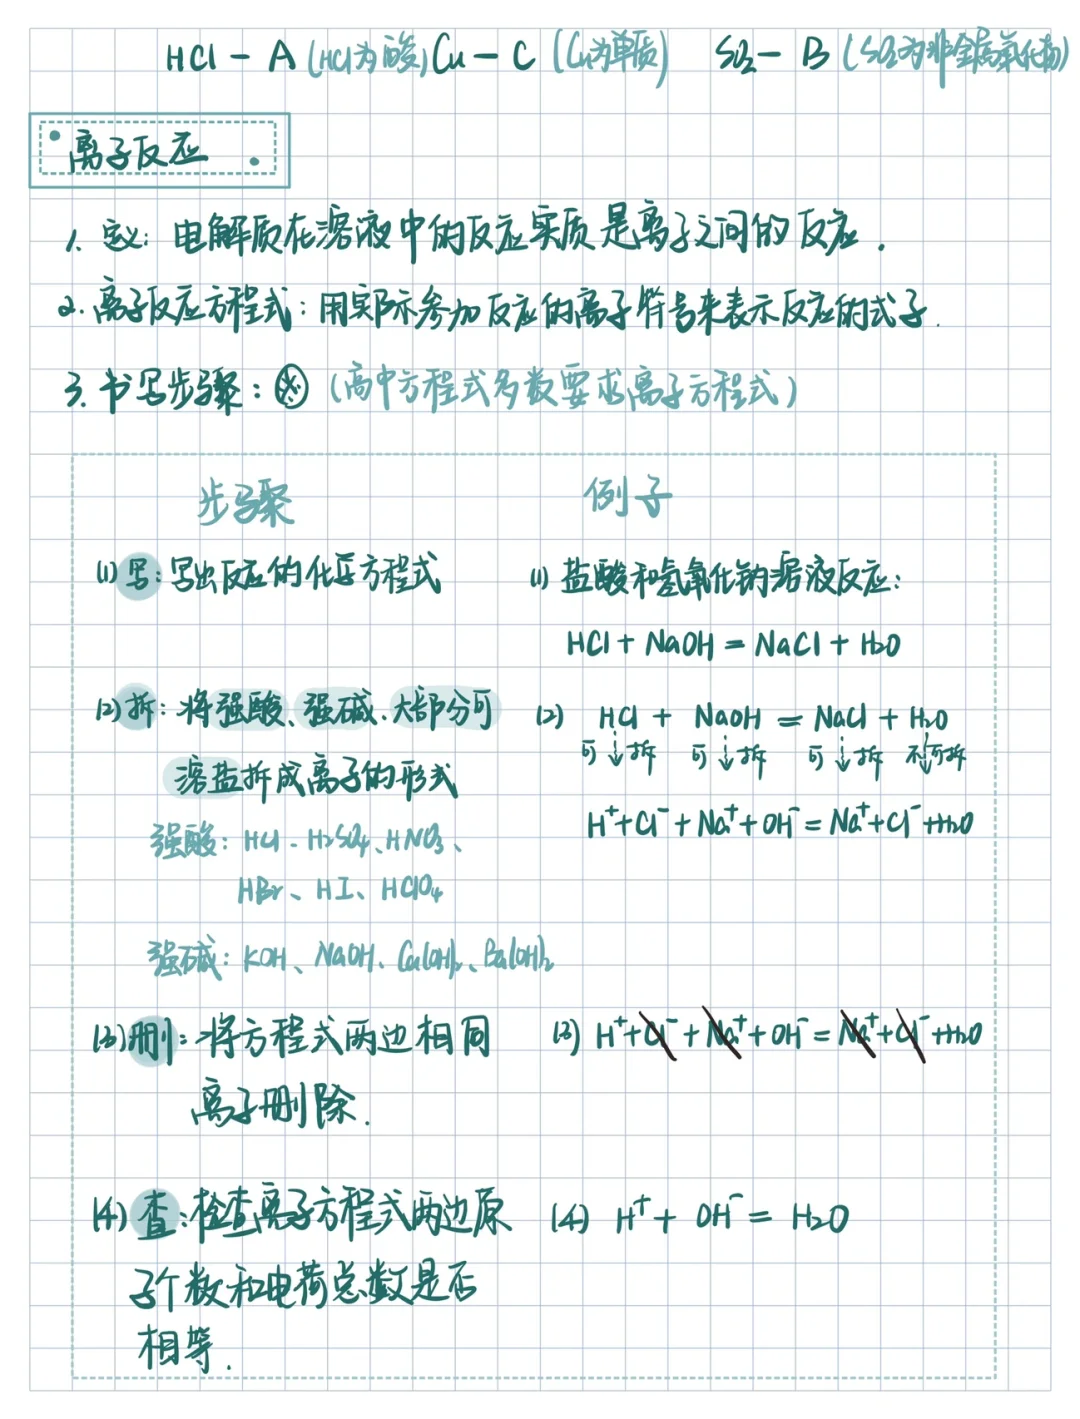 HCl – A (HCl为酸) Cu – C (Cu为单质) SO₂ – B (SO₂为非金属氧化物)
离子反应
1. 定义: 电解质在溶液中的反应实质是离子之间的反应.
2. 离子反应方程式: 用实际参加反应的离子符号来表示反应的式子.
3. 书写步骤: ※ (高中方程式多数要求离子方程式)
步骤
例子
(1) 写: 写出反应的化学方程式
(1) 盐酸和氢氧化钠溶液反应:
HCl + NaOH = NaCl + H₂O
(2) 拆: 将强酸、强碱、大部分可
溶盐拆成离子的形式
强酸: HCl、H₂SO₄、HNO₃、
HBr、HI、HClO₄
强碱: KOH、NaOH、Ca(OH)₂、Ba(OH)₂
(2) HCl + NaOH = NaCl + H₂O
可↓拆 可↓拆 可↓拆 不↓可拆
H⁺+Cl⁻+Na⁺+OH⁻=Na⁺+Cl⁻+H₂O
(3) 删: 将方程式两边相同
离子删除.
(3) H⁺+Cl⁻+Na⁺+OH⁻=Na⁺+Cl⁻+H₂O
(4) 查: 检查离子方程式两边原
子个数和电荷总数是否
相等.
(4) H⁺+ OH⁻= H₂O